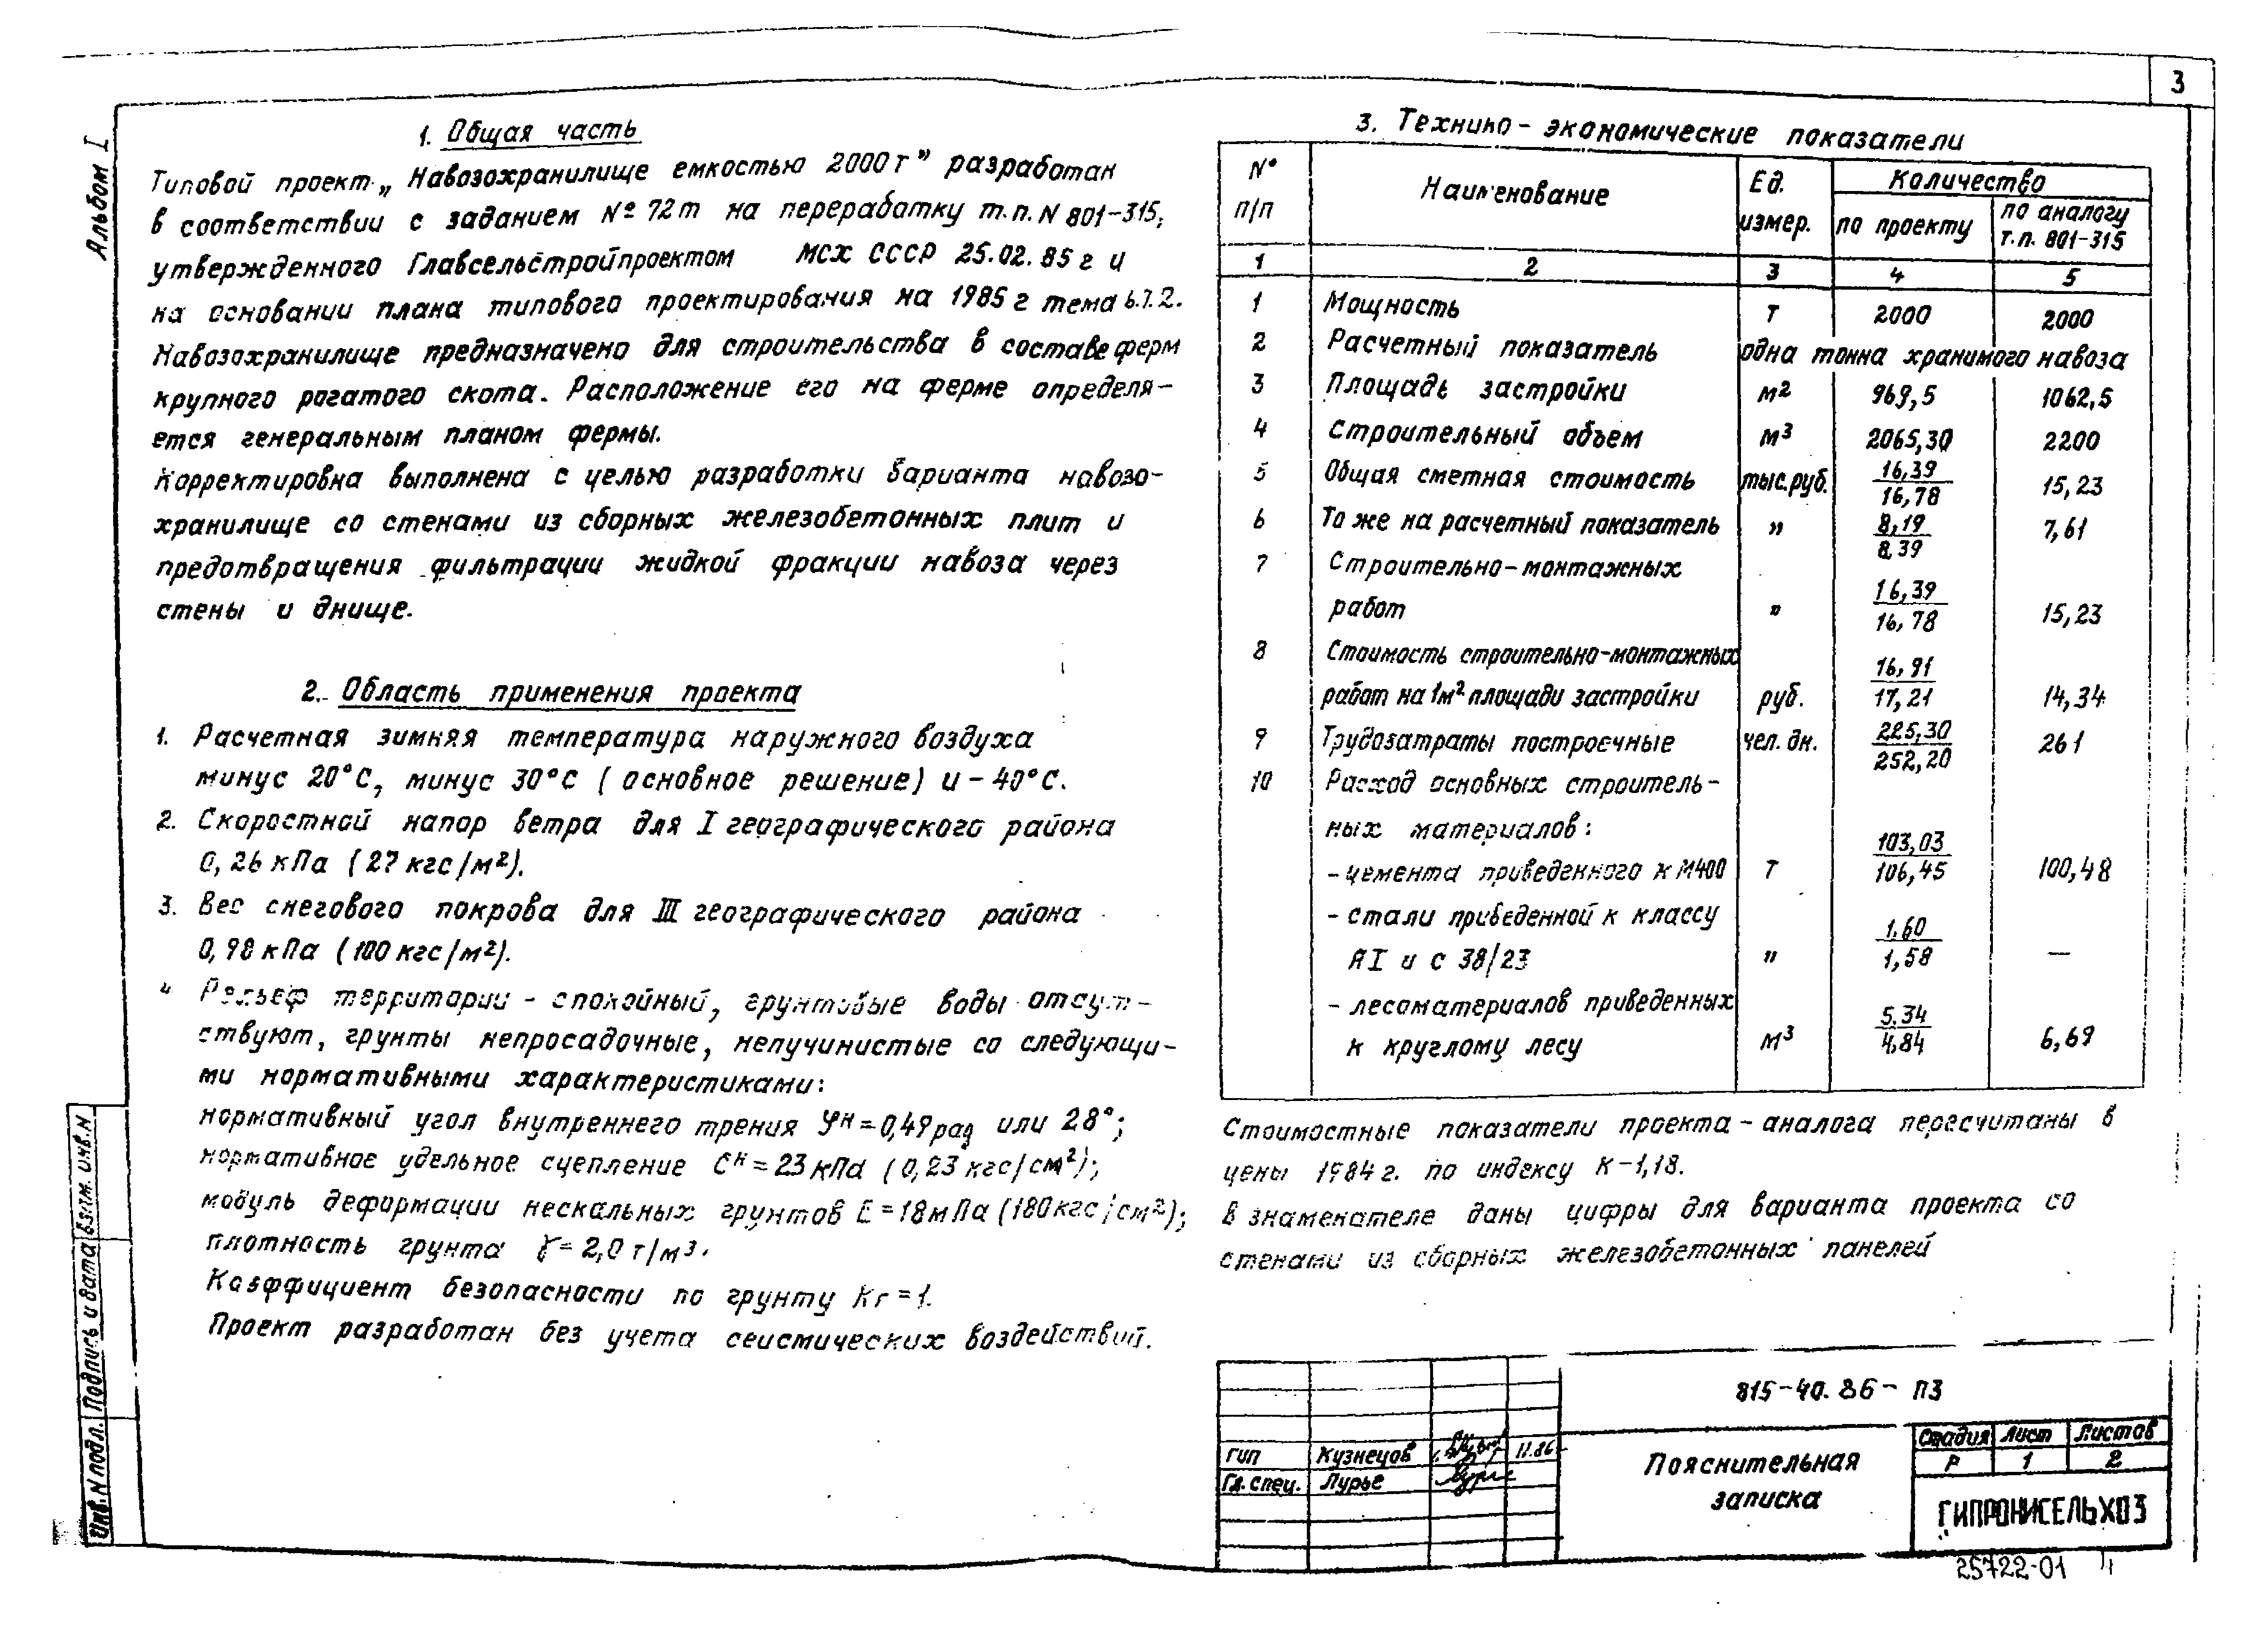 3
Альбом I
1. Общая часть
Типовой проект „Навозохранилище емкостью 2000т" разработан
в соответствии с заданием №72т на переработку т.п. N 801-315,
утвержденного Главсельстройпроектом МСХ СССР 25.02.85г и
на основании плана типового проектирования на 1985г тема 6.7.2.
Навозохранилище предназначено для строительства в составе ферм
крупного рогатого скота. Расположение его на ферме определя-
ется генеральным планом фермы.
Корректировка выполнена с целью разработки варианта навозо-
хранилище со стенами из сборных железобетонных плит и
предотвращения фильтрации жидкой фракции навоза через
стены и днище.
2. Область применения проекта
1. Расчетная зимняя температура наружного воздуха
минус 20°С, минус 30°С (основное решение) и -40°С.
2. Скоростной напор ветра для I географического района
0,26 кПа (27 кгс/м²).
3. Вес снегового покрова для III географического района
0,98 кПа (100 кгс/м²).
4 Рельеф территории - спокойный, грунтовые воды отсут-
ствуют, грунты непросадочные, непучинистые со следующи-
ми нормативными характеристиками:
нормативный угол внутреннего трения φн = 0,49 рад или 28°;
нормативное удельное сцепление Сн = 23 кПа (0,23 кгс/см²);
модуль деформации нескальных грунтов Е = 18мПа (180кгс/см²);
плотность грунта γ = 2,0 т/м³.
Коэффициент безопасности по грунту Кг = 1.
Проект разработан без учета сеисмических воздействий.
3. Технико-экономические показатели
N° п/п | Наименование | Ед. измер. | Количество
по проекту | по аналогу т.п. 801-315
1 | 2 | 3 | 4 | 5
1 Мощность Т 2000 2000
2 Расчетный показатель одна тонна хранимого навоза
3 Площадь застройки м² 969,5 1062,5
4 Строительный объем м³ 2065,30 2200
5 Общая сметная стоимость тыс.руб. 16,39/16,78 15,23
6 То же на расчетный показатель " 8,19/8,39 7,61
7 Строительно-монтажных
работ " 16,39/16,78 15,23
8 Стоимость строительно-монтажных
работ на 1м² площади застройки руб. 16,91/17,21 14,34
9 Трудозатраты построечные чел. дн. 225,30/252,20 261
10 Расход основных строитель-
ных материалов:
- цемента приведенного к М400 Т 103,03/106,45 100,48
- стали приведенной к классу
АI и С 38/23 " 1,60/1,58 —
- лесоматериалов приведенных
к круглому лесу м³ 5.34/4,84 6,69
Стоимостные показатели проекта-аналога пересчитаны в
цены 1984г. по индексу К-1,18.
В знаменателе даны цифры для варианта проекта со
стенами из сборных железобетонных панелей
815-40.86- ПЗ
ГИП Кузнецов 11.86
Гл. спец. Лурье
Пояснительная
записка
Стадия Лист Листов
Р 1 2
ГИПРОНИСЕЛЬХОЗ
25722-01 4
Инв. N подл. Подпись и дата Взам. инв. N